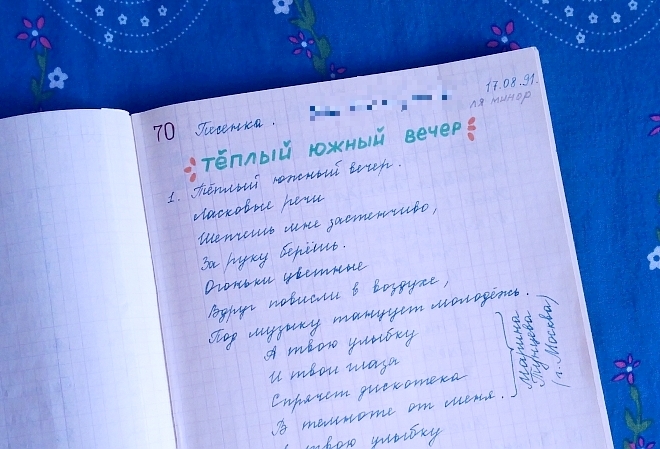 17.08.91.
ля минор
70 Песенка.
ТЁПЛЫЙ ЮЖНЫЙ ВЕЧЕР
1. Тёплый южный вечер.
Ласковые речи
Шепчешь мне застенчиво,
За руку берёшь.
Огоньки цветные
Вдруг повисли в воздухе,
Под музыку танцует молодёжь.
А твою улыбку
И твои глаза
Спрячет дискотека
В темноте от меня.
твою улыбку
Марина
(г. Москва)